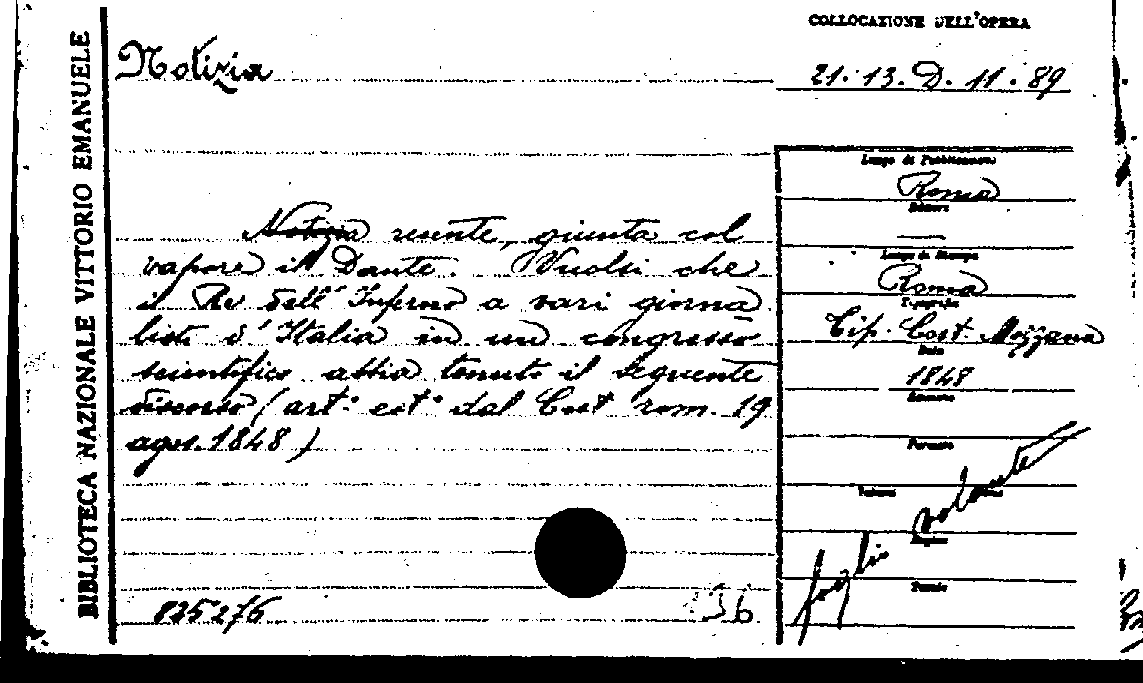 COLLOCAZIONE DELL'OPERA
BIBLIOTECA NAZIONALE VITTORIO EMANUELE
Notizia
21. 13. D. 11. 89
Luogo di Pubblicazione
Roma
Editore
—
Luogo di Stampa
Roma
Tipografia
Tip. Cost. Mozzana
Data
1848
Formato
Volumi
foglio volante
Notizia recente, giunta col
vapore il Dante. Vuolsi che
il Re dell'Inferno a vari giorna
listi d'Italia in un congresso
scientifico abbia tenuto il seguente
discorso (art: est: dal Cost rom. 19
agos. 1848)
825276
36